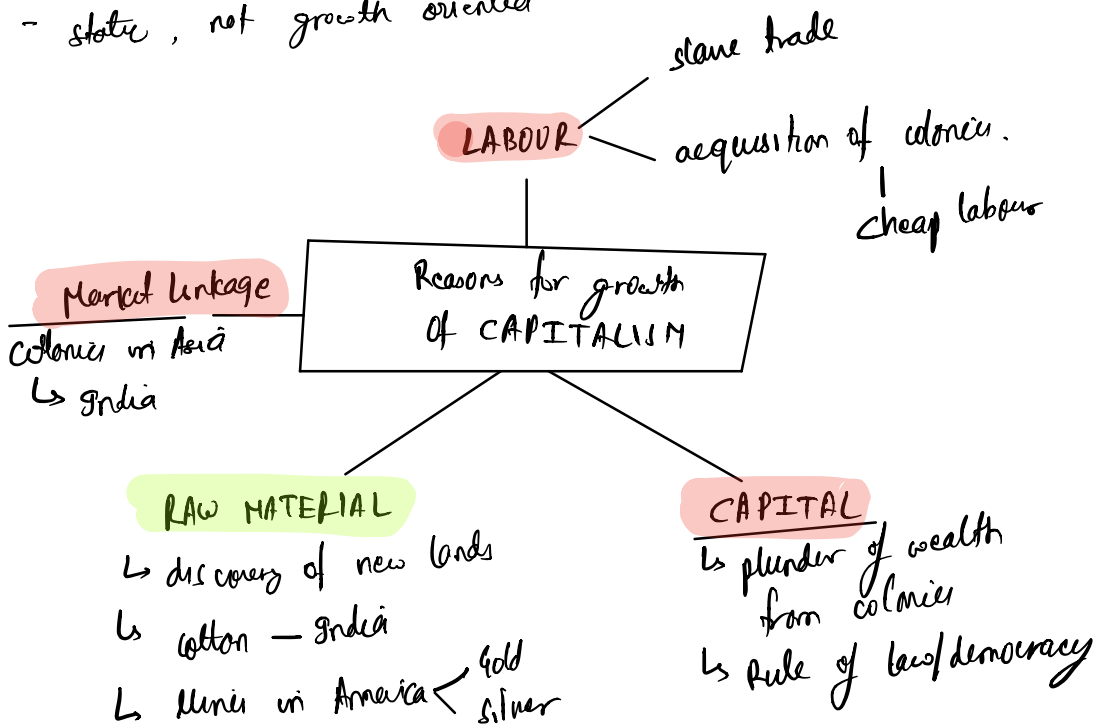 - static, not growth oriented
LABOUR
slave trade
acquisition of colonies.
cheap labour
Reasons for growth
of CAPITALISM
Market linkage
colonies in Asia
↳ India
RAW MATERIAL
↳ discovery of new lands
↳ cotton — India
↳ Mines in America < Gold
silver
CAPITAL
↳ plunder of wealth
from colonies
↳ Rule of law/democracy